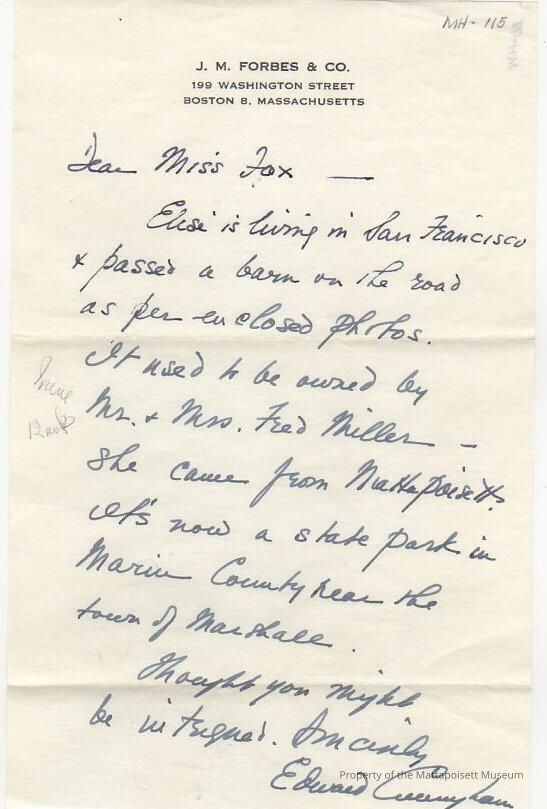 MH-115
J. M. FORBES & CO.
199 WASHINGTON STREET
BOSTON 8, MASSACHUSETTS
Dear Miss Fox —
Elise is living in San Francisco
& passed a barn on the road
as per enclosed photos.
It used to be owned by
Mr. & Mrs. Fred Miller —
She came from Mattapoisett.
It's now a state park in
Marin County near the
town of Marshall.
Thought you might
be intrigued. Sincerely
Edward Cunningham
Property of the Mattapoisett Museum